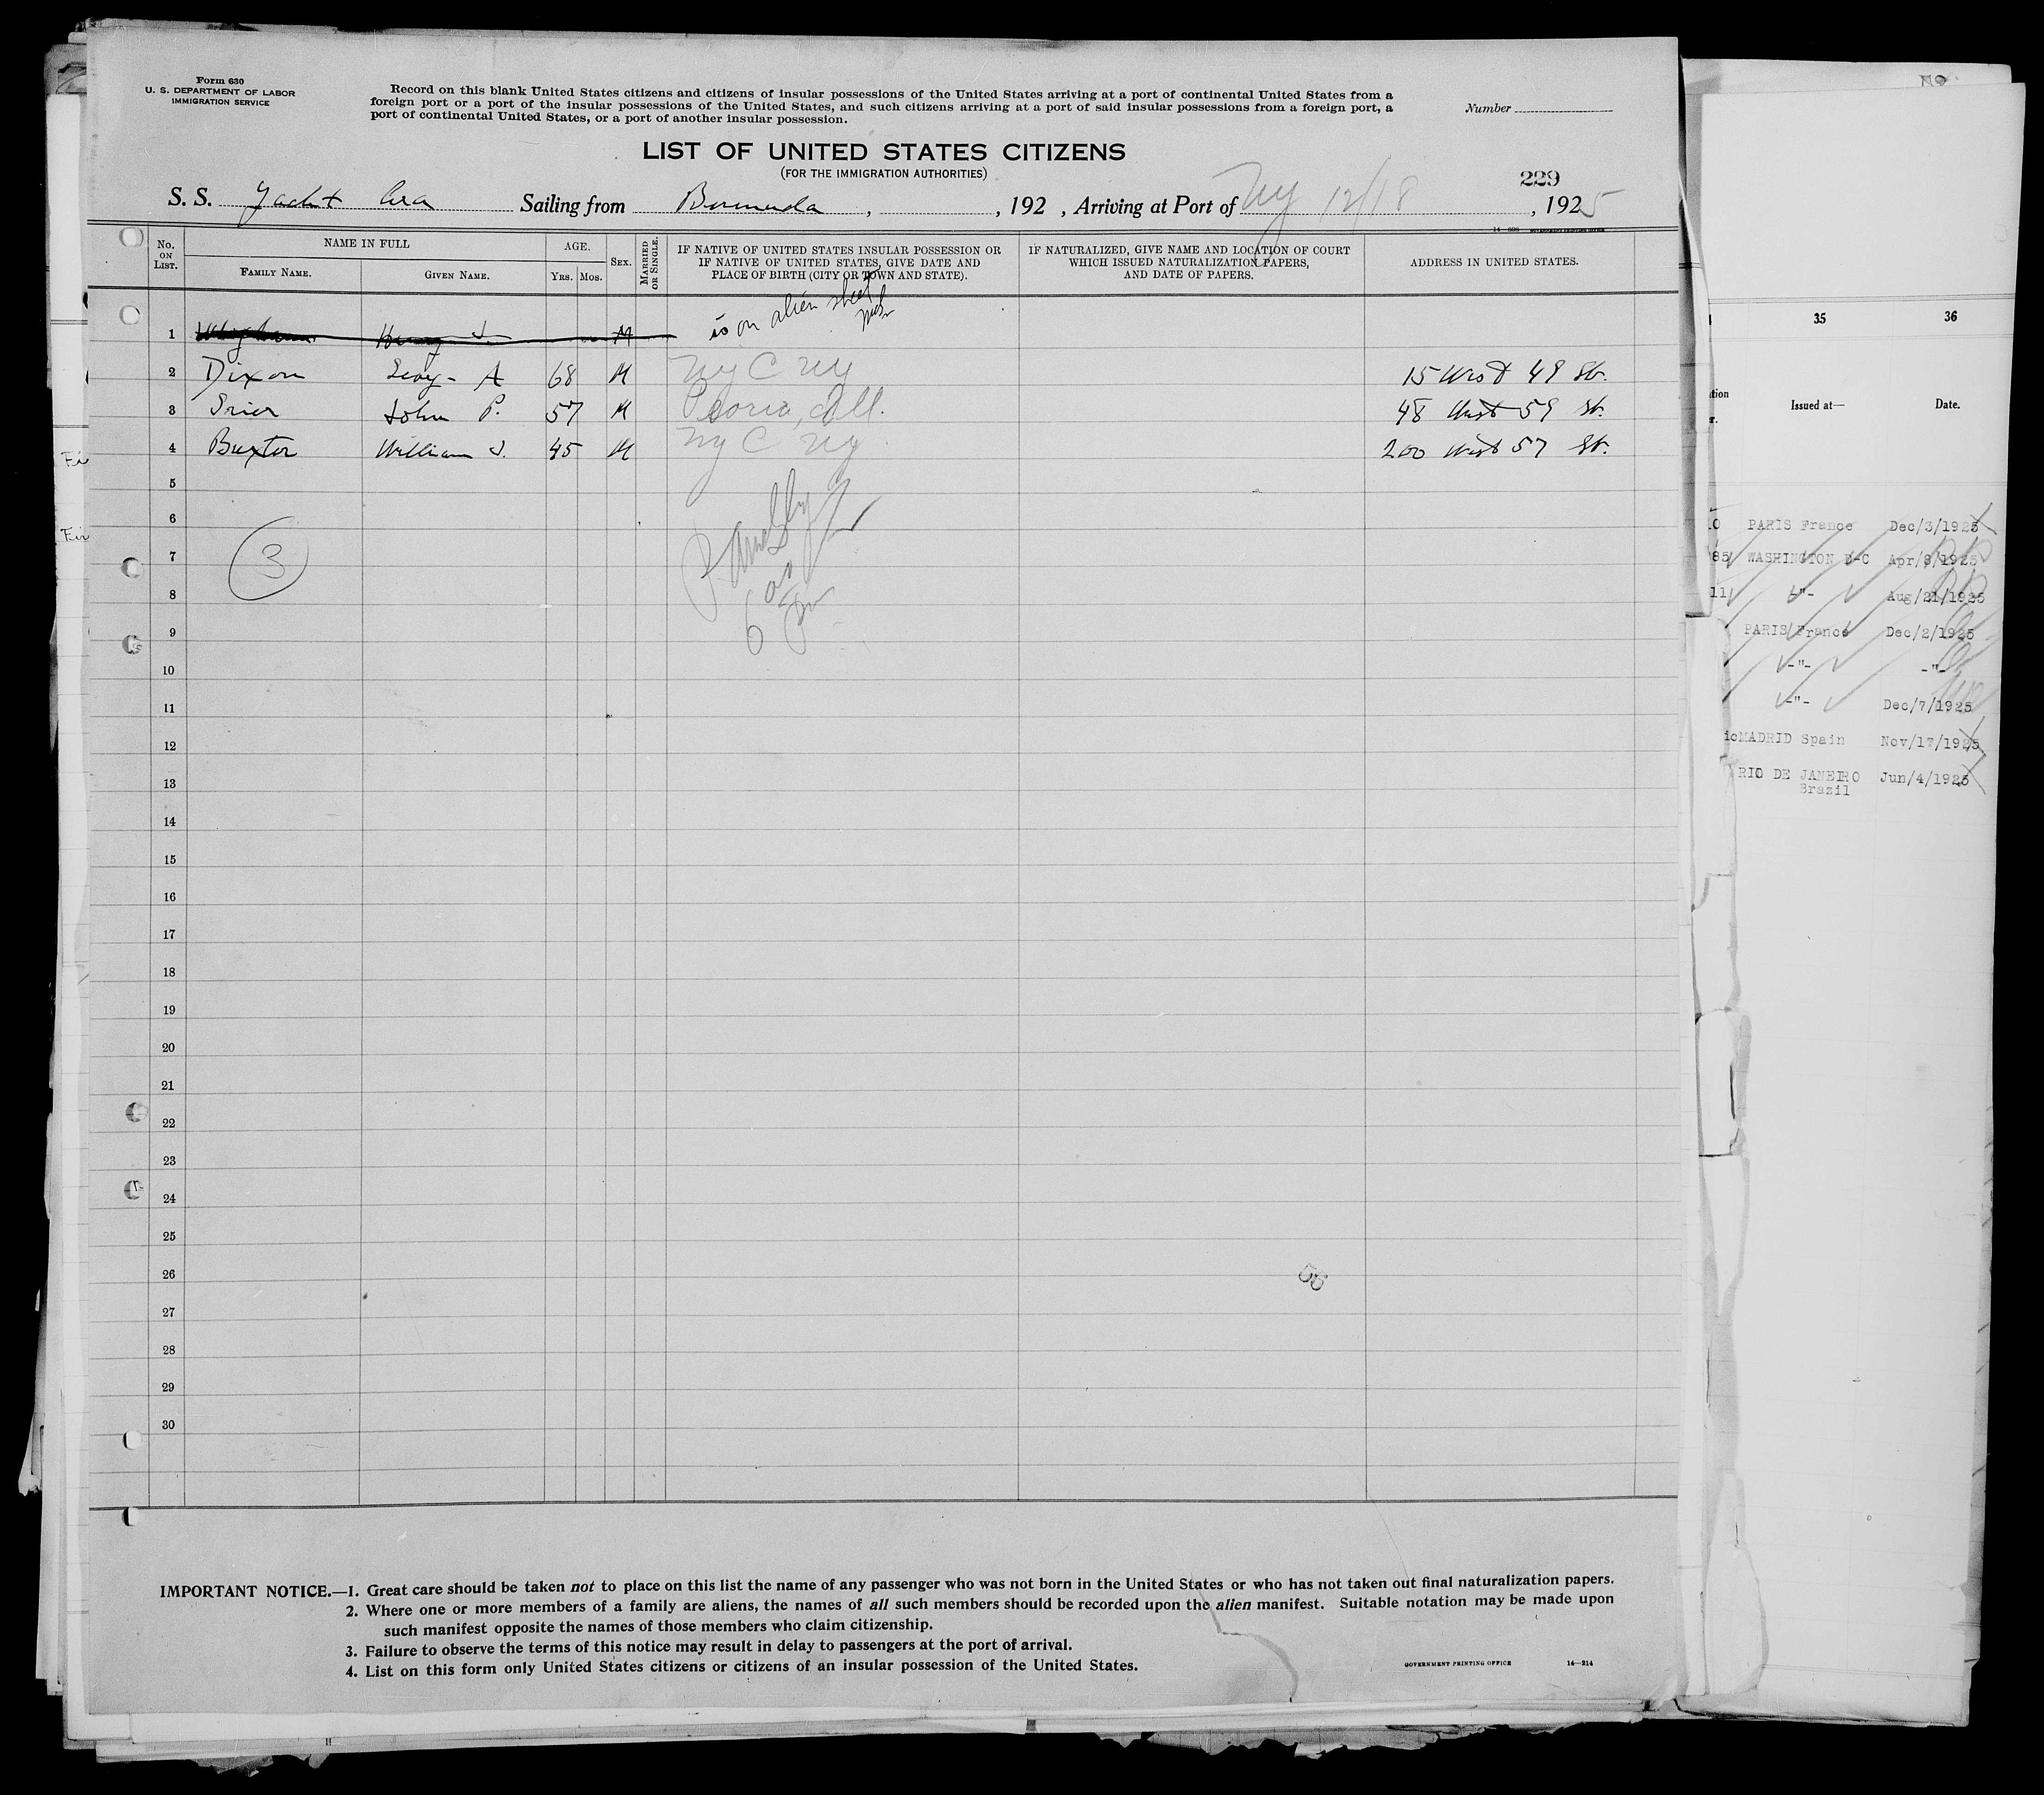 Form 630
U. S. DEPARTMENT OF LABOR
IMMIGRATION SERVICE
Record on this blank United States citizens and citizens of insular possessions of the United States arriving at a port of continental United States from a
foreign port or a port of the insular possessions of the United States, and such citizens arriving at a port of said insular possessions from a foreign port, a
port of continental United States, or a port of another insular possession.
Number
LIST OF UNITED STATES CITIZENS
(FOR THE IMMIGRATION AUTHORITIES)
229
S. S. Yacht Ara Sailing from Bermuda , , 192 , Arriving at Port of NY 12/18 , 1925
No. ON LIST. NAME IN FULL AGE. SEX. MARRIED OR SINGLE. IF NATIVE OF UNITED STATES INSULAR POSSESSION OR IF NATIVE OF UNITED STATES, GIVE DATE AND PLACE OF BIRTH (CITY OR TOWN AND STATE). IF NATURALIZED, GIVE NAME AND LOCATION OF COURT WHICH ISSUED NATURALIZATION PAPERS, AND DATE OF PAPERS. ADDRESS IN UNITED STATES.
FAMILY NAME. GIVEN NAME. Yrs. Mos.
1 M is on alien sheet
2 Dixon A 68 M NY C NY 15 West 49 St.
3 John P. 57 M Peoria, Ill. 48 West 59 St.
4 Baxter William J. 45 M NY C NY 200 West 57 St.
5
6
7 3
8
9
10
11
12
13
14
15
16
17
18
19
20
21
22
23
24
25
26
27
28
29
30
IMPORTANT NOTICE.—1. Great care should be taken not to place on this list the name of any passenger who was not born in the United States or who has not taken out final naturalization papers.
2. Where one or more members of a family are aliens, the names of all such members should be recorded upon the alien manifest. Suitable notation may be made upon
such manifest opposite the names of those members who claim citizenship.
3. Failure to observe the terms of this notice may result in delay to passengers at the port of arrival.
4. List on this form only United States citizens or citizens of an insular possession of the United States.
GOVERNMENT PRINTING OFFICE 14—214
35 36
Issued at— Date.
PARIS France Dec/3/1925
85 WASHINGTON D-C Apr/8/1925
11 -"- Aug/21/1925
PARIS France Dec/2/1925
-"- -"-
-"- Dec/7/1925
MADRID Spain Nov/17/1925
RIO DE JANEIRO Jun/4/1925
Brazil